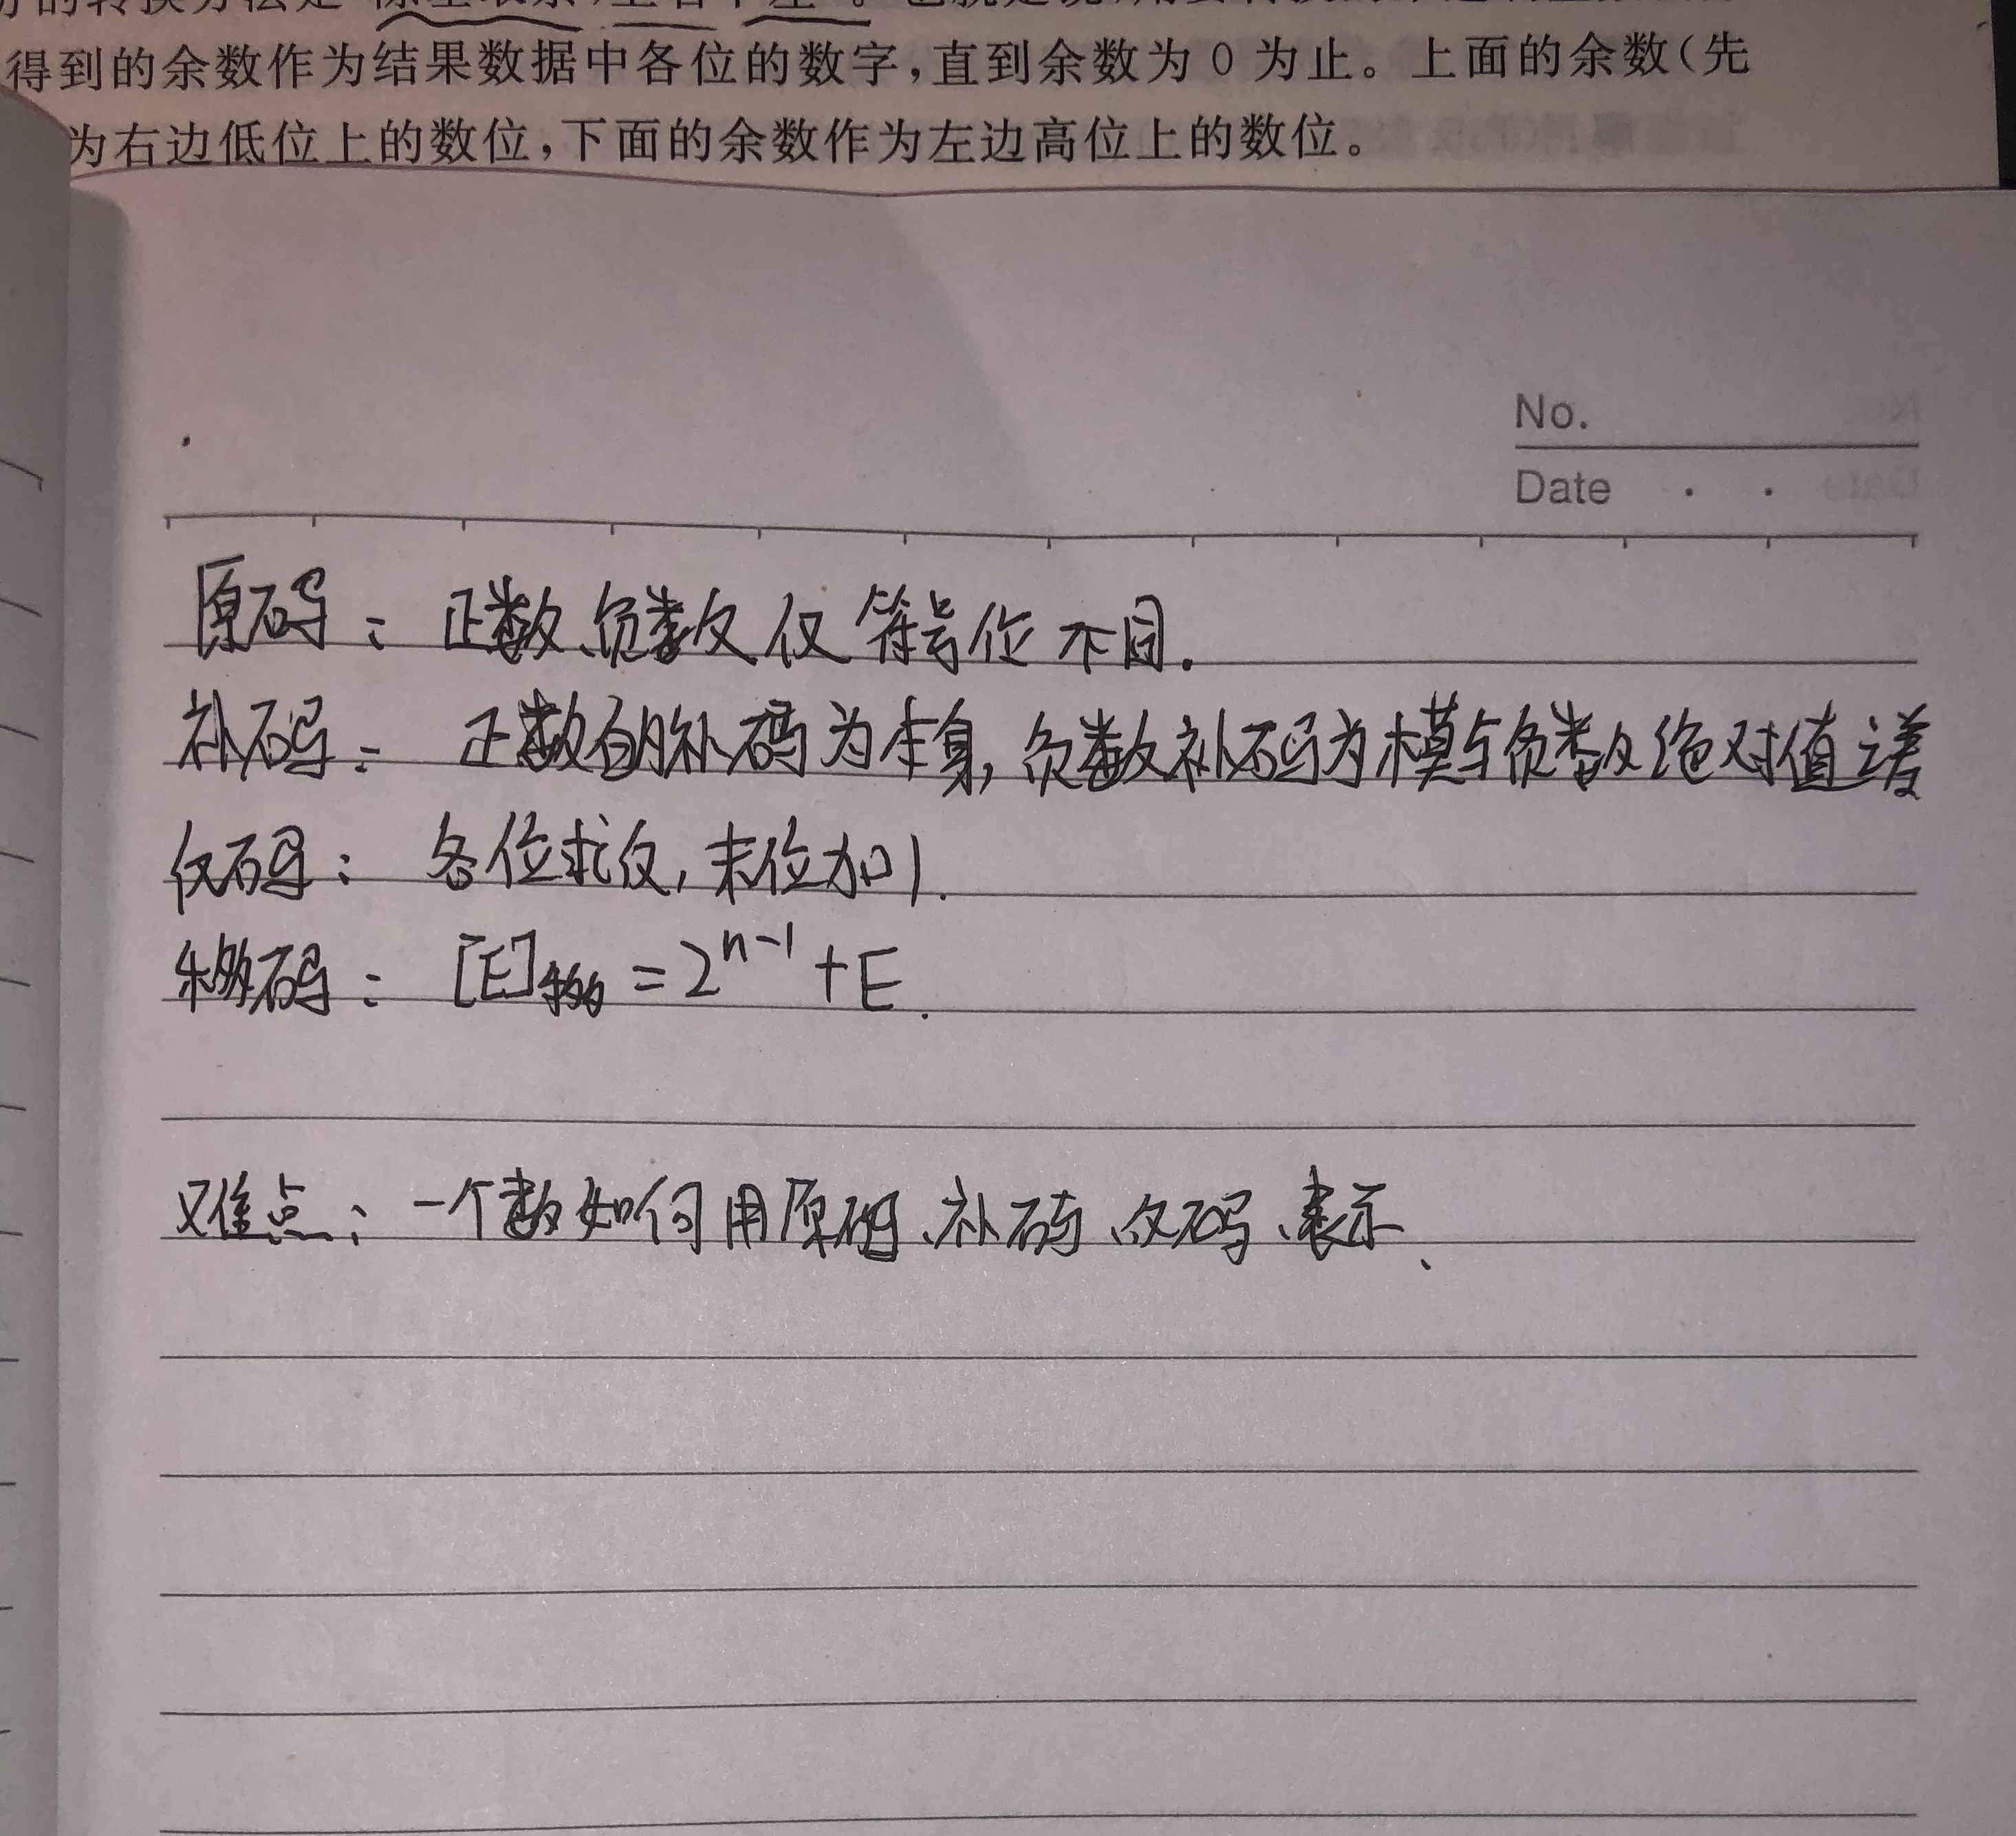 得到的余数作为结果数据中各位的数字,直到余数为 0 为止。上面的余数(先
为右边低位上的数位,下面的余数作为左边高位上的数位。
No.
Date
原码: 正数、负数仅符号位不同.
补码: 正数的补码为本身,负数补码为模与负数绝对值之差
反码: 各位求反,末位加1.
移码: [E]移 = 2^{n-1} + E.
难点: 一个数如何用原码、补码、反码、表示、